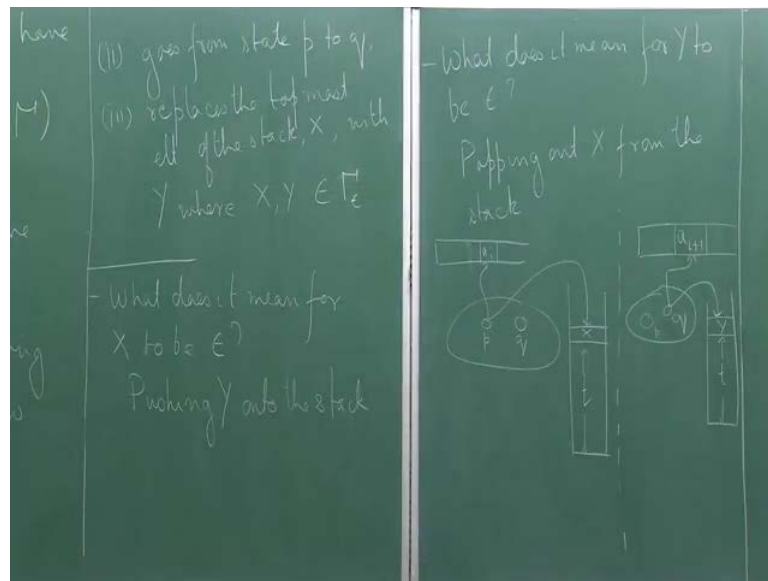 have
M)
ing
(ii) goes from state p to q.
(iii) replaces the top most
elt of the stack, X, with
Y where X, Y ∈ Γε
- What does it mean for
X to be ε?
Pushing Y onto the stack
- What does it mean for Y to
be ε?
Popping out X from the
stack
ai
p q
X
t
ai+1
p q
Y
t